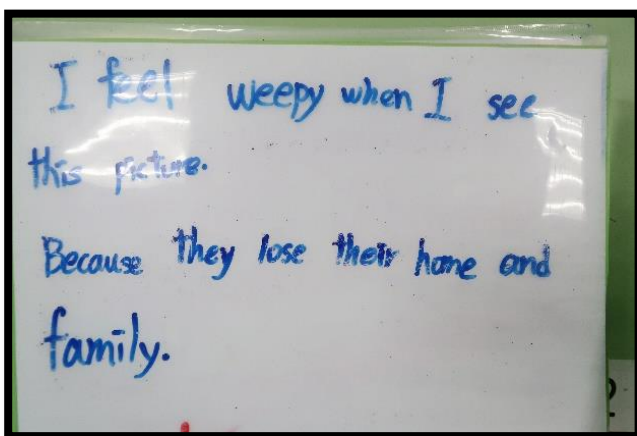 I feel weepy when I see
this picture.
Because they lose their home and
family.